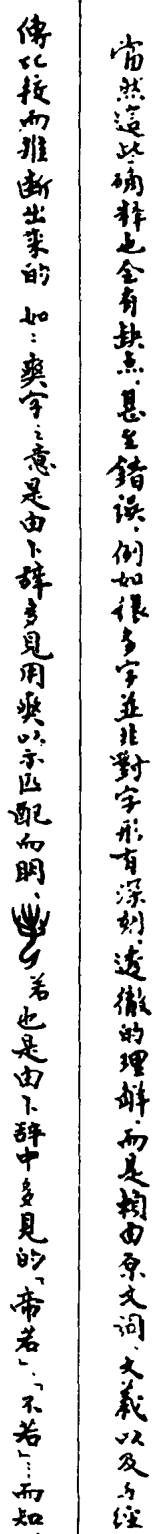 當然這些确釋也会有缺点,甚至錯誤,例如很多字並非對字形有深刻、透徹的理解,而是藉由原文詞、文義以及与經
傳比按而推断出來的 如:奭字之意是由卜辞多見用奭以示匹配而明、若也是由卜辞中多見的「帝若」、「不若」…而知,